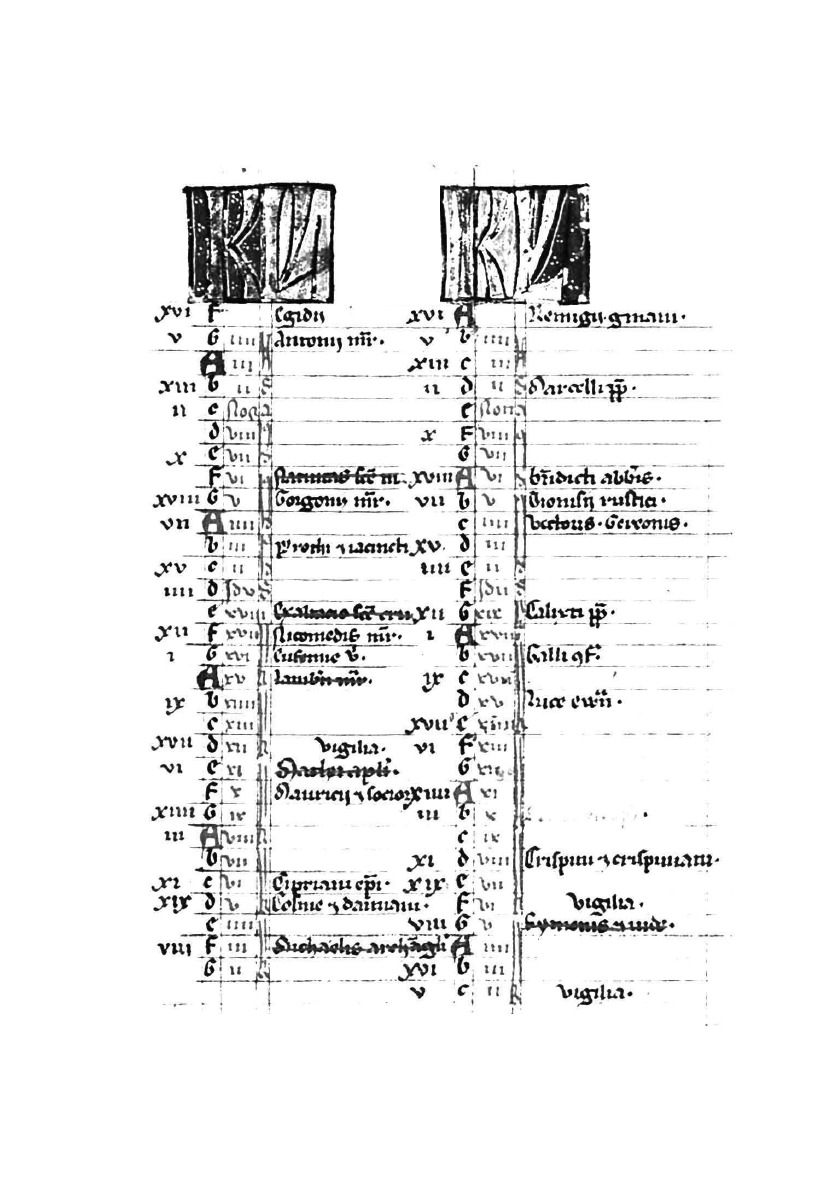 KL
xvi f Egidii
v G iiii Antonij mr̄.
A iii
xiii b ii
ii c Non
d viii
x e vii
f vi Natiuitas sc̄e m
xviii G v Gorgonij mr̄.
vii A iiii
b iii Prothi ⁊ iacincti
xv c ii
iiii d Idus
e xviii Exaltacio sc̄e cru
xii f xvii Nicomedis mr̄.
i G xvi Eufemie v̄.
A xv Lamb'ti mr̄.
ix b xiiii
c xiii
xvii d xii vigilia.
vi e xi Mathei apl'i.
f x Mauricij ⁊ socior
xiiii G ix
iii A viii
b vii
xi c vi Cipriani ep̄i.
xix d v Cosme ⁊ damiani.
e iiii
viii f iii Michaelis archāgli
G ii
KL
xvi A Remigij. gmani.
v b iiii
xiii c iii
ii d ii Marcelli pp̄.
e Non
x f viii
G vii
xviii A vi bn̄dicti abb'is.
vii b v Dionisij rustici.
c iiii Victoris. Gereonis.
xv. d iii
iiii e ii
f Idus
xii G xix Calixti pp̄.
i A xviii
b xvii Galli ɔf.
ix c xvi
d xv Luce ewā.
xvii e xiiii
vi f xiii
G xii
xiiii A xi
iii b x
c ix
xi d viii Crispini ⁊ crispiniani.
xix e vii
f vi vigilia.
viii G v Symonis ⁊ iude.
A iiii
xvi b iii
v c ii vigilia.